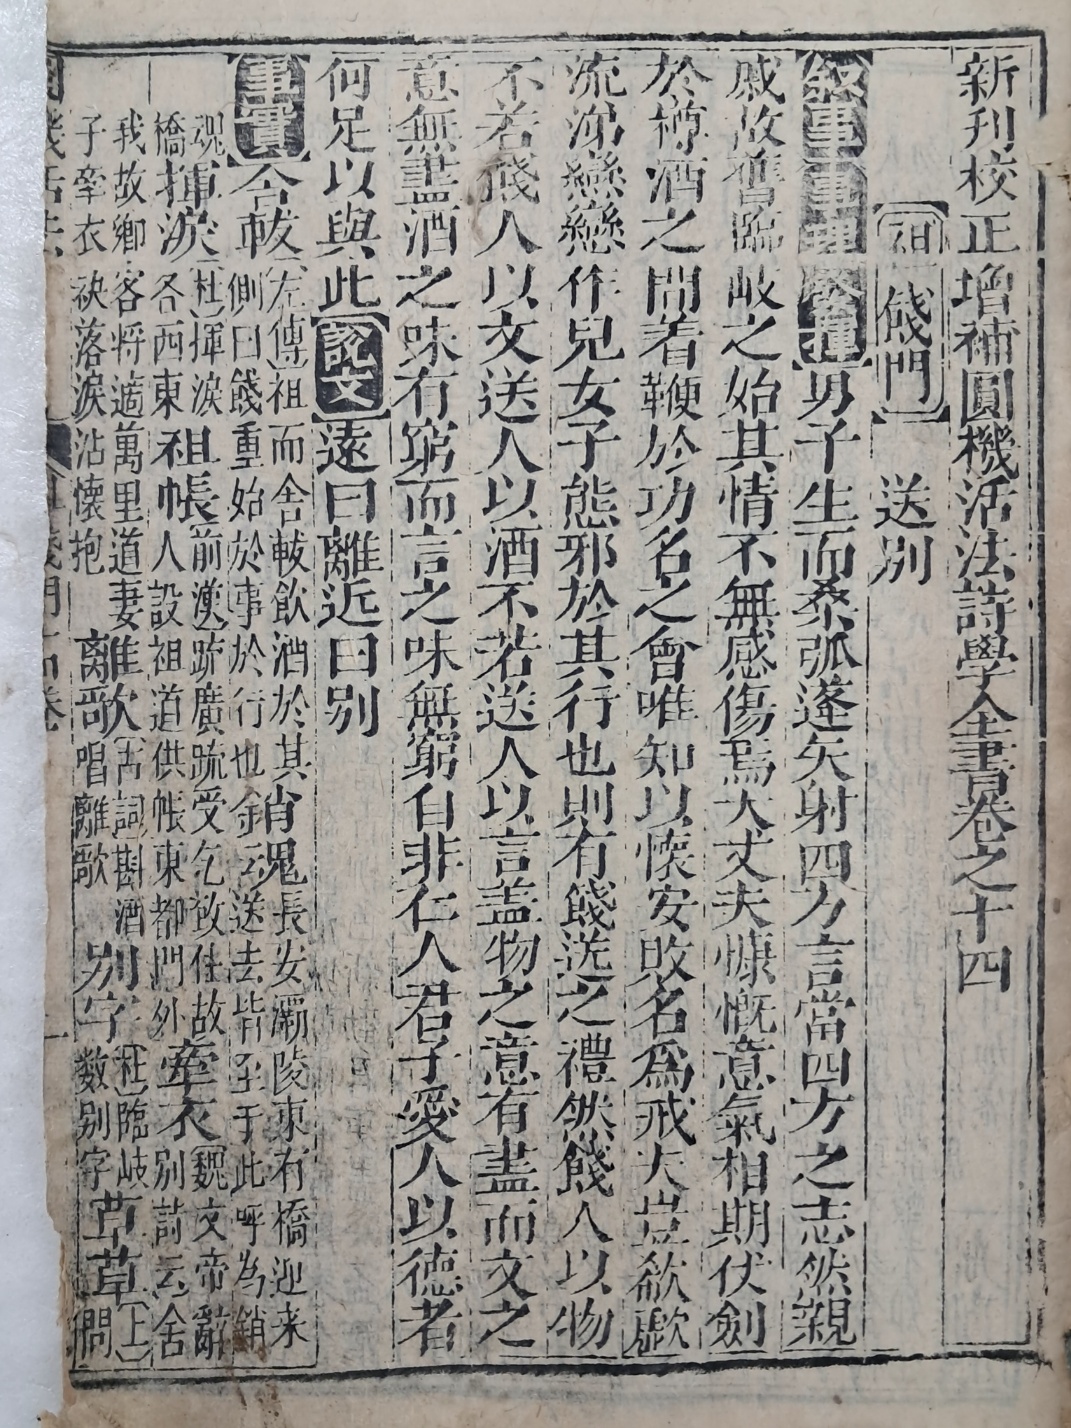 新刊校正增補圓機活法詩學全書卷之十四
祖餞門 送別
敘事事理發揮男子生而桑弧蓬矢射四方言當四方之志然親
戚故舊臨岐之始其情不無感傷焉大丈夫慷慨意氣相期伏劍
於樽酒之間着鞭於功名之會唯知以懷安敗名爲戒夫豈欷歔
流涕戀戀作兒女子態邪於其行也則有餞送之禮然餞人以物
不若餞人以文送人以酒不若送人以言盖物之意有盡而文之
意無盡酒之味有窮而言之味無窮自非仁人君子愛人以德者
何足以與此說文遠曰離近曰别
事實舍軷左傳祖而舍軷飲酒於其
側曰餞重始於事於行也
銷魂長安灞陵東有橋迎来
送去皆至于此呼為銷
魂橋
揮淚杜揮淚
各西東
祖帳前漢疏廣疏受乞致仕故
人設祖道供帳東都門外
牽衣魏文帝辭
别詩云舍
我故鄉客将適萬里道妻
子牽衣袂落淚沾懷抱
離歌古詞斟酒
唱離歌
别字杜臨岐
数别字
草草上